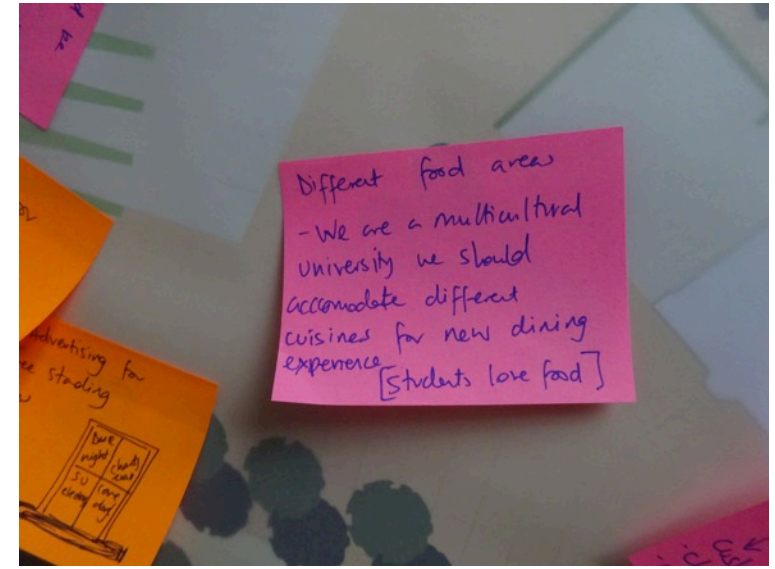 Different food areas
- We are a multicultural
university we should
accomodate different
cuisines for new dining
experience
[Students love food]
Advertising for
standing
night
SU